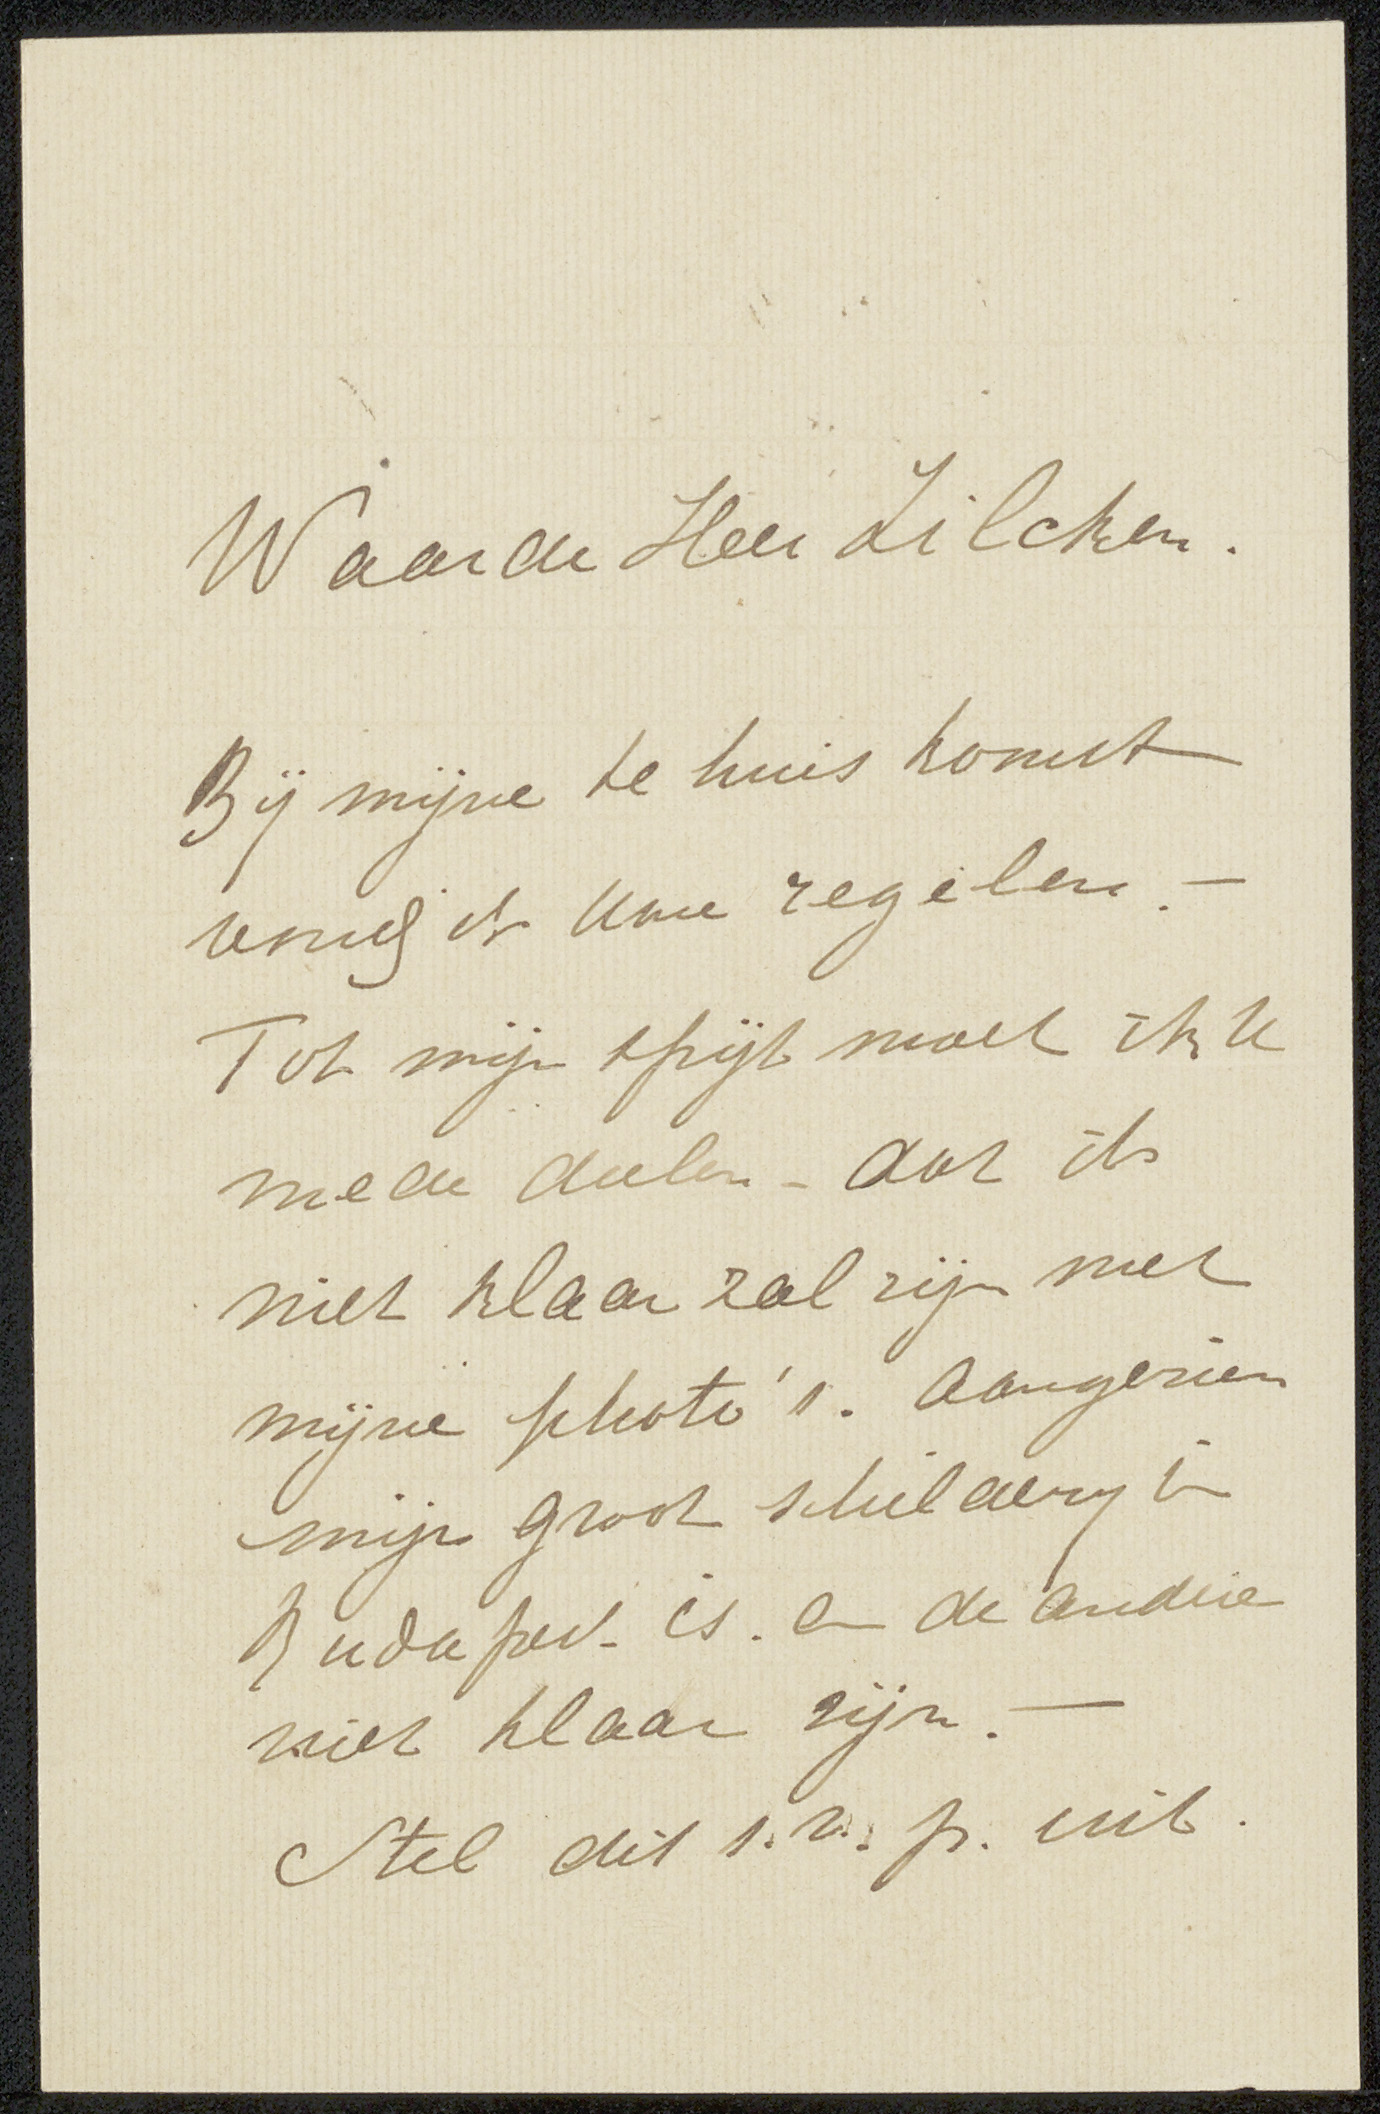 Waarde Heer Zilcken.
Bij mijne te huis komst
vond ik Uwe regelen. —
Tot mijn spijt moet ik U
mede deelen - dat ik
niet klaar zal zijn met
mijne photo's. aangezien
mijn groot schildery in
Budapest is. en de andere
niet klaar zijn. —
Stel dit s.v.p. uit.